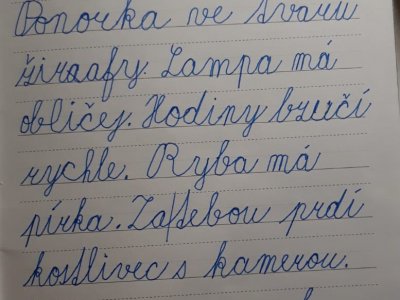 Ponorka ve tvaru
žiraafy. Lampa má
obličej. Hodiny bzučí
rychle. Ryba má
pírka. Za tebou prdí
kostlivec s kamerou.